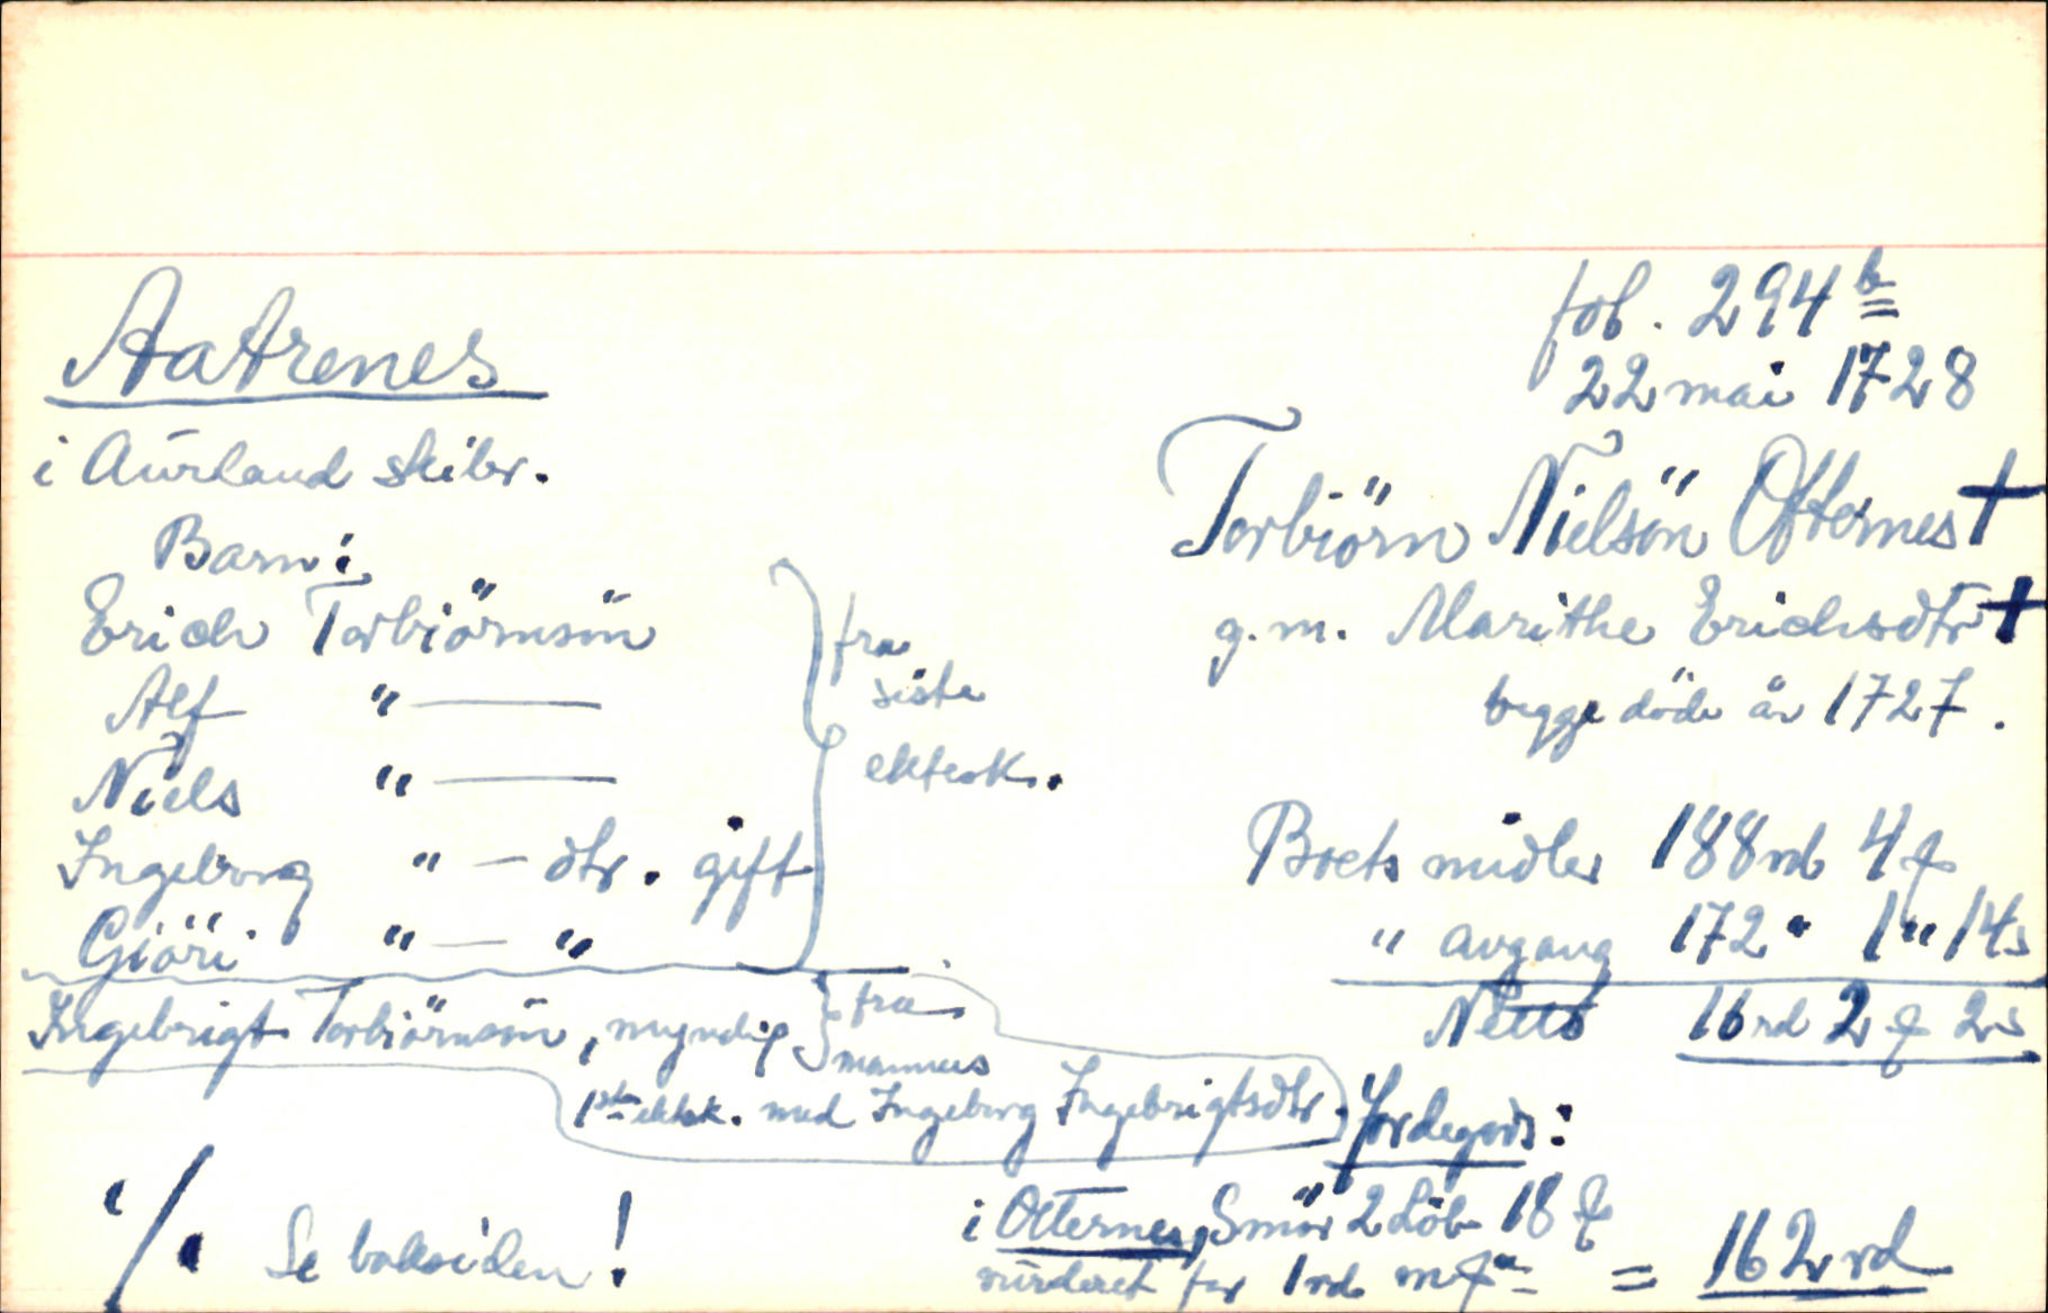 Aatrenes
i Aurland skibr.
Barn:
Erich Torbiörnsön
Alf " —
Niels " —
Ingeborg " — dtr. gift
Giöri " — "
fra
siste
ektesk.
Ingebrigt Torbiörnsön, myndig
fra
mannens
1ste ektesk. med Ingeborg Ingebrigtsdtr.
·/. Se baksiden!
fol. 294 b
22 mai 1728
Torbiörn Nielsön Otternes †
g.m. Marithe Erichsdtr †
begge döde år 1727.
Boets midler 188 rd 4
" avgang 172 " 1 " 14 s
Netto 16 rd 2 2 s
Jordegods:
i Otternes, Smör 2 Löb 18
vurderet for 1 rd = 162 rd